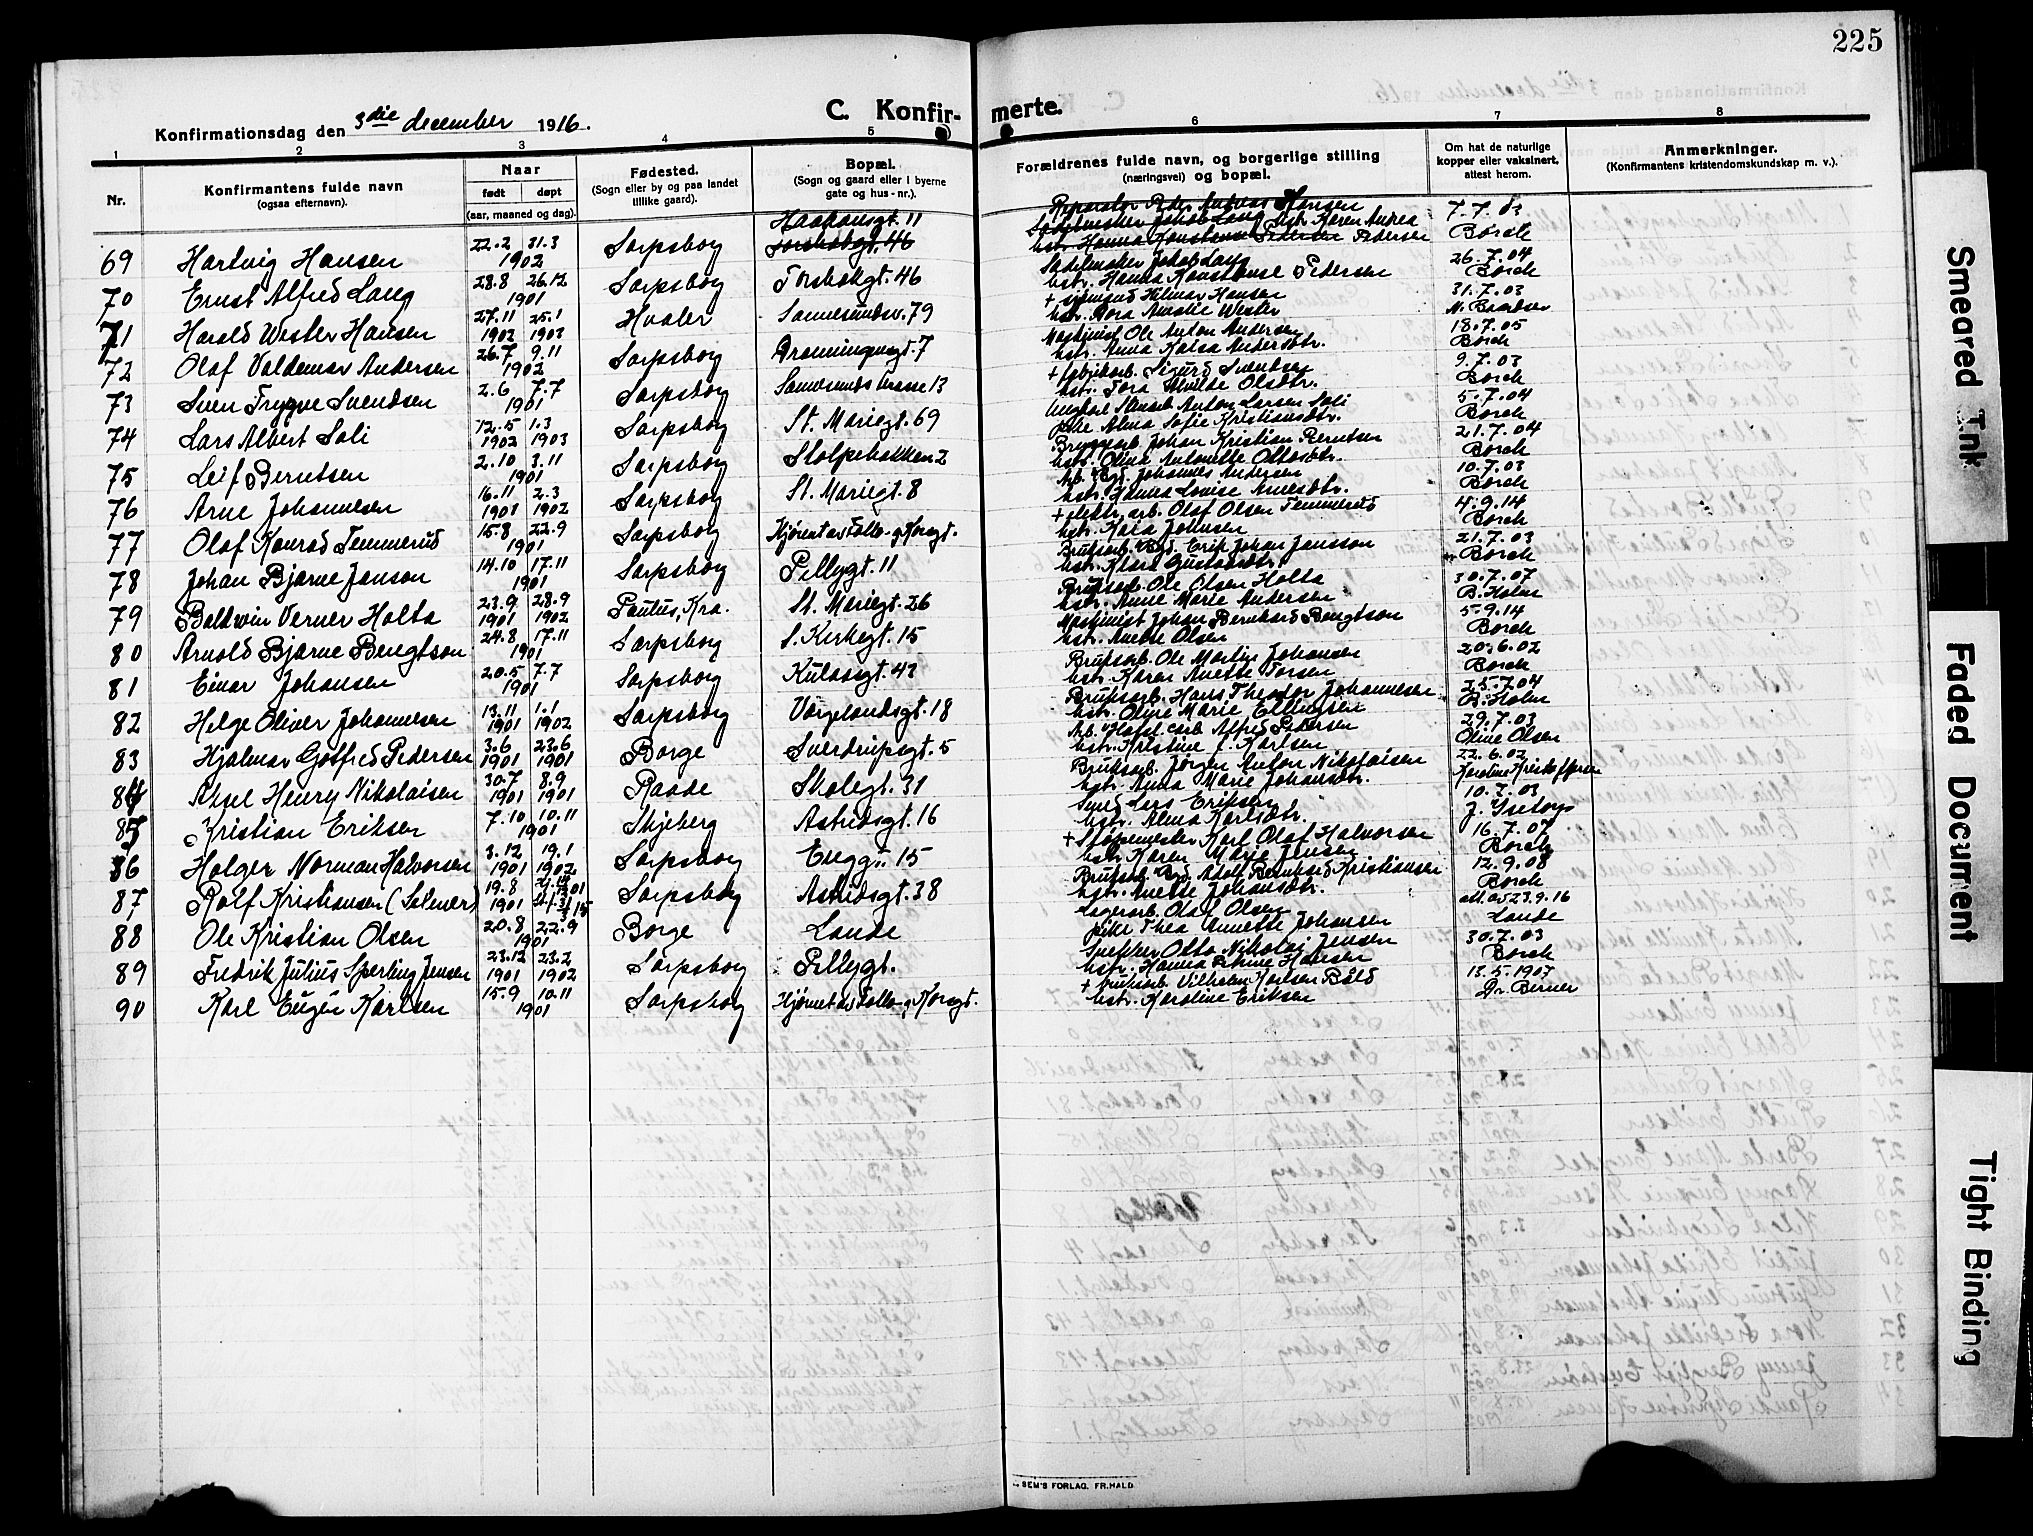 225
Konfirmationsdag den 3die december 1916.
C. Konfirmerte.
1 2 3 4 5 6 7 8
Nr.
Konfirmantens fulde navn
(ogsaa efternavn).
Naar
født døpt
(aar, maaned og dag).
Fødested.
(Sogn eller by og paa landet
tillike gaard).
Bopæl.
(Sogn og gaard eller i byerne
gate og hus-nr.).
Forældrenes fulde navn, og borgerlige stilling
(næringsvei) og bopæl.
Om hat de naturlige
kopper eller vaksinert,
attest herom.
Anmerkninger.
(Konfirmantens kristendomskundskap m. v.).
69 Hartvig Hansen 22.2 31.3 1902 Sarpsborg Haakonsgt. 11 Torsbekgt. 46 Reparatør Peder Andreas Hansen hstr. Karen Andrea Pedersen 7.7.03 Borch
70 Ernst Alfred Lang 28.8 26.12 1901 Sarpsborg Torsbekgt. 46 Sadelmaker Jakob Lang hstr. Hanna Konstanse Pedersen 26.7.04 Borch
71 Harald Wester Hansen 27.11 1902 25.1 1903 Hvaler Sannesundsv. 79 + sjømand Hilmar Hansen hstr. Dora Amalie Wester 31.7.03
72 Olaf Valdemar Andersen 26.7 9.11 1902 Sarpsborg Dronningensgt. 7 Maskinist Ole Anton Andersen hstr. Anna Kaisa Andersdtr. 18.7.05 Borch
73 Sven Trygve Svendsen 2.6 7.7 1901 Sarpsborg Sannesunds trasse 13 + fabrikarb. Sigurd Svendsen hstr. Tora Alvilde Olsdtr. 9.7.03 Borch
74 Lars Albert Soli 12.5 1902 1.3 1903 Sarpsborg St. Mariegt. 69 Ungkarl Anton Larsen Soli pike Alma Sofie Kristiansdtr. 5.7.04 Borch
75 Leif Berntsen 2.10 3.11 1901 Sarpsborg Stolpebakken 2 Bryggearb. Johan Kristian Berntsen hstr. Olina Antonette Ottosdtr. 21.7.04 Borch
76 Arne Johannesen 16.11 1901 2.3 1902 Sarpsborg St. Mariegt. 8 Arb. Johannes Andersen hstr. Hanna Louise Arnesdtr. 10.7.03 Borch
77 Olaf Konrad Temmerud 15.8 22.9 1901 Sarpsborg Hjørnet av Folke- og Korsgt. + elektr. arb. Olaf Olsen Temmerud hstr. Kaia Johnsen 4.9.14 Borch
78 Johan Bjarne Janson 14.10 17.11 1901 Sarpsborg Pellygt. 11 Bruksarb. Erik Johan Jansson hstr. Klara Gustavsdtr. 21.7.03 Borch
79 Baldwin Verner Holta 23.9 1901 28.9 1902 Paulus, Kra. St. Mariegt. 26 Bruksarb. Ole Olsen Holta hstr. Anne Marie Andersen 30.7.07 B. Holm
80 Arnold Bjarne Bengtson 24.8 17.11 1901 Sarpsborg S. Kirkegt. 15 Maskinist Johan Bernhard Bengtson hstr. Anette Olsen 5.9.14 Borch
81 Einar Johansen 20.5 7.7 1901 Sarpsborg Kulaasgt. 43 Bruksarb. Ole Martin Johansen hstr. Karen Anette Torsen 20.6.02 Borch
82 Helge Oliver Johannesen 13.11 1901 1.1 1902 Sarpsborg Vergelandsgt. 18 Bruksarb. Hans Theodor Johannesen hstr. Oline Marie Ellingsen 25.7.04 B. Holm
83 Hjalmar Gotfred Pedersen 3.6 1901 23.6 1901 Borge Sverdrupsgt. 5 Arb. Alfred Pedersen hstr. Kristine J. Karlsen 29.7.03 Oline Olsen
84 Aksel Henry Nikolaisen 30.7 1901 8.9 1901 Raade Skolegt. 31 Bruksarb. Jørgen Anton Nikolaisen hstr. Anna Marie Johansdtr. 22.6.02 Karoline Kristoffersen
85 Kristian Eriksen 7.10 10.11 1901 Skjeberg Astridsgt. 16 Smed Lars Eriksen hstr. Alma Karlsdtr. 10.7.03
86 Holger Norman Halvorsen 3.12 1901 19.1 1902 Sarpsborg Enggt. 15 + Støpemester Karl Olaf Halvorsen hstr. Karen Marie Jensen 16.7.07 Borch
87 Rolf Kristiansen (Solmer) 19.8 1901 Sarpsborg Astridsgt. 38 Bruksarb. Adolf Bernhard Kristiansen hstr. Anette Johansdtr. 12.9.08 Borch
88 Ole Kristian Olsen 20.8 22.9 1901 Borge Lande Lagerarb. Olaf Olsen pike Thea Annette Johansen att. av 23.9.16 Lande
89 Fredrik Julius Sperling Jensen 23.12 1901 23.2 1902 Sarpsborg Pellygt. Snekker Otto Nikolai Jensen hstr. Hanna Petrine Hansen 30.7.03 Borch
90 Karl Eugen Karlsen 15.9 10.11 1901 Sarpsborg Hjørnet av Folke- og Korsgt. + bruksarb. Vilhelm Karlsen Bøld hstr. Karoline Eriksen 13.5.1907 Dr. Berner
SEM'S FORLAG. FR.HALD
Smeared Ink
Faded Document
Tight Binding